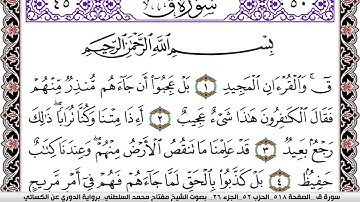 ٤٥ سورة ق ٥٠
بِسْمِ اللَّهِ الرَّحْمَٰنِ الرَّحِيمِ
قٓ ۚ وَالْقُرْءَانِ الْمَجِيدِ ١ بَلْ عَجِبُوٓا أَن جَآءَهُم مُّنذِرٌ مِّنْهُمْ
فَقَالَ الْكَٰفِرُونَ هَٰذَا شَىْءٌ عَجِيبٌ ٢ أَءِذَا مِتْنَا وَكُنَّا تُرَابًا ۖ ذَٰلِكَ
رَجْعٌۢ بَعِيدٌ ٣ قَدْ عَلِمْنَا مَا تَنقُصُ الْأَرْضُ مِنْهُمْ ۖ وَعِندَنَا كِتَٰبٌ
حَفِيظٌۢ ٤ بَلْ كَذَّبُوا بِالْحَقِّ لَمَّا جَآءَهُمْ فَهُمْ فِىٓ أَمْرٍ مَّرِيجٍ
سورة ق الصفحة ٥١٨ الحزب ٥٢ الجزء ٢٦ بصوت الشيخ مفتاح محمد السلطني برواية الدوري عن الكسائي